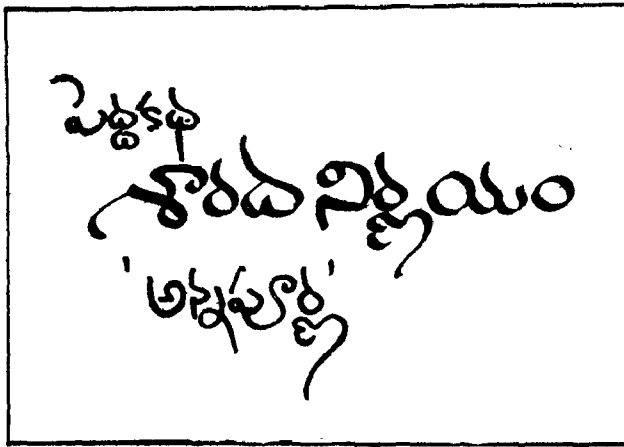 పెద్దకథ
శారద నిర్ణయం
'అన్నపూర్ణ'